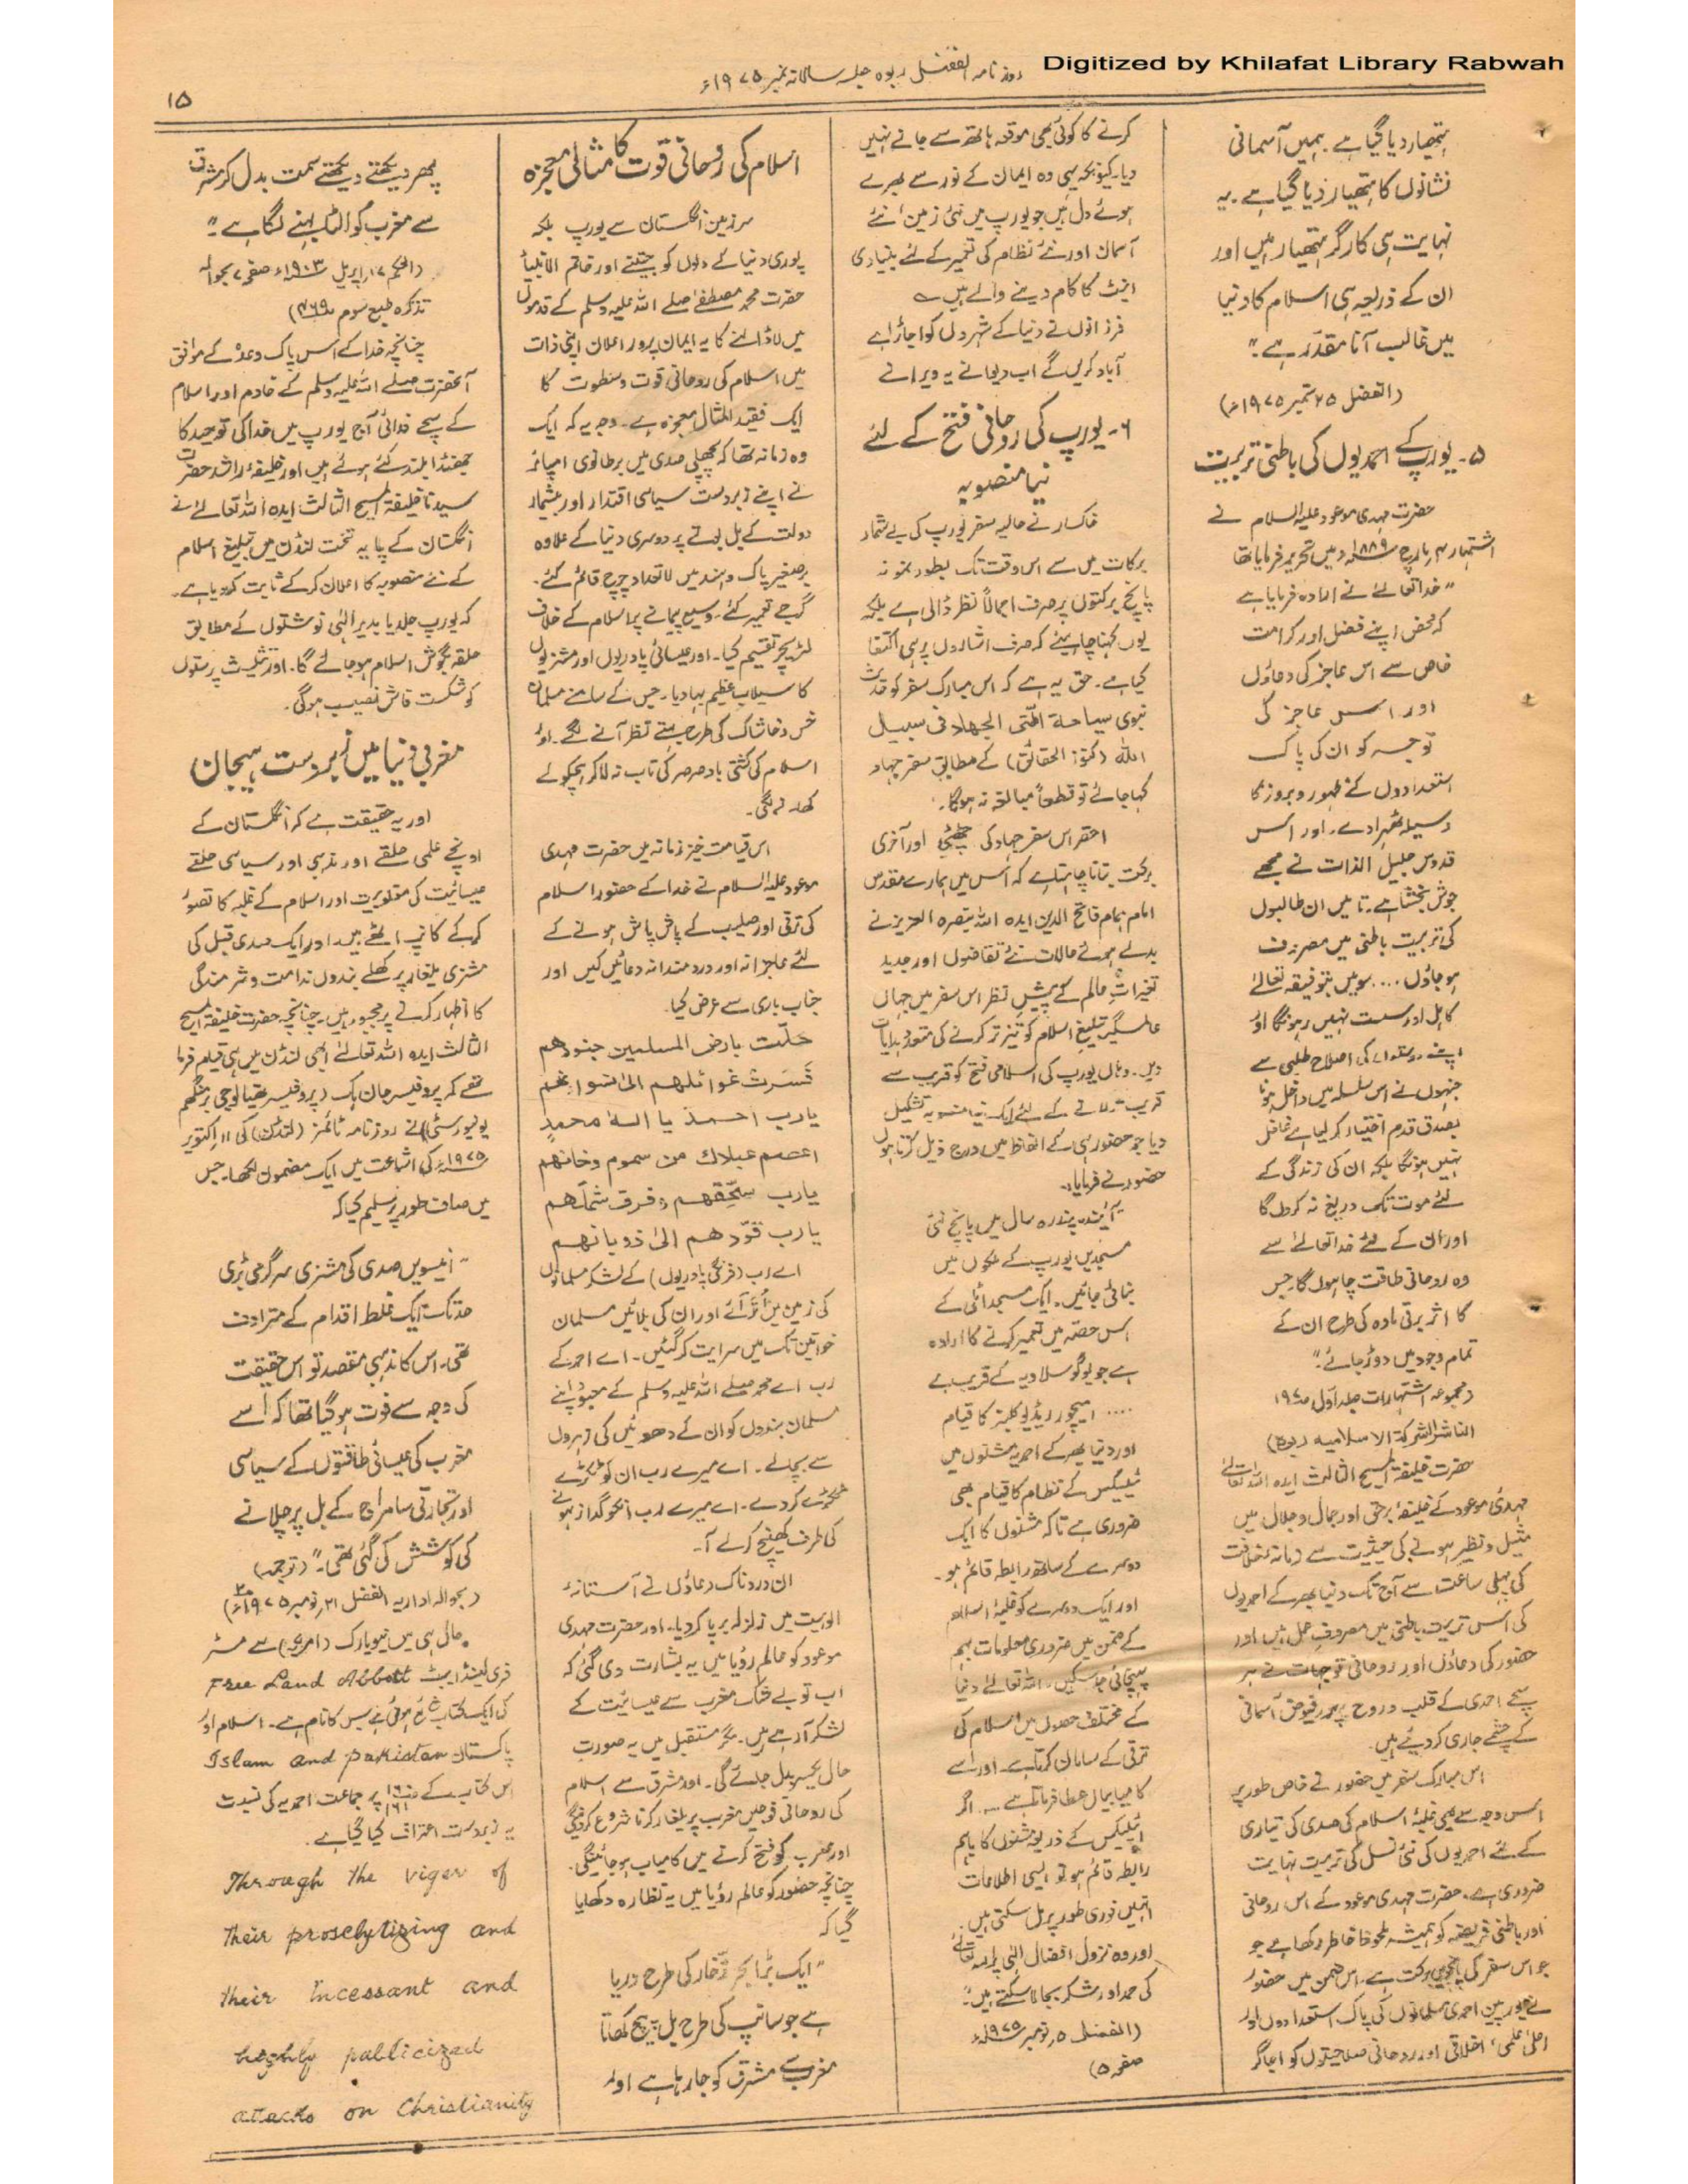 Digitized by Khilafat Library Rabwah
روزنامہ الفضل ربوہ جلسہ سالانہ نمبر ۱۹۷۵ء
۱۵
ہتھیار دیا گیا ہے۔ ہمیں آسمانی
نشانوں کا ہتھیار دیا گیا ہے۔ یہ
نہایت ہی کارگر ہتھیار ہیں اور
ان کے ذریعہ ہی اسلام کا دنیا
میں غالب آنا مقدر ہے۔"
(الفضل ۲۵ ستمبر ۱۹۷۵ء)
۵۔ یورپ کے احمدیوں کی باطنی تربیت
حضرت مہدی موعود علیہ السلام نے
اشتہار ۴ مارچ ۱۸۸۹ء میں تحریر فرمایا تھا
"خدا تعالےٰ نے ارادہ فرمایا ہے
کہ محض اپنے فضل اور کرامت
خاص سے اس عاجز کی دعاؤں
اور اس عاجز کی
توجہ کو ان کی پاک
استعدادوں کے ظہور و بروز کا
وسیلہ ٹھہرا دے۔ اور اس
قدوس جلیل الذات نے مجھے
جوش بخشا ہے۔ تا میں ان طالبوں
کی تربیت باطنی میں مصروف
ہو جاؤں .... سو میں بتوفیقہ تعالےٰ
کاہل اور سست نہیں رہونگا اور
اپنے دوستوں کی اصلاح طلبی سے
جنہوں نے اس سلسلہ میں داخل ہونا
بصدق قدم اختیار کر لیا ہے غافل
نہیں ہونگا بلکہ ان کی زندگی کے
لئے موت تک دریغ نہ کروں گا
اور ان کے لئے خدا تعالےٰ سے
وہ روحانی طاقت چاہوں گا۔ جس
کا اثر برقی مادہ کی طرح ان کے
تمام وجود میں دوڑ جائے۔"
(مجموعہ اشتہارات جلد اول ۱۹۷
الناشر الشرکۃ الاسلامیہ ربوہ)
حضرت خلیفۃ المسیح الثالث ایدہ اللہ تعالےٰ
مہدی موعود کے خلیفۂ برحق اور جمال و جلال میں
مثیل و نظیر ہونے کی حیثیت سے زمانہ خلافت
کی پہلی ساعت سے آج تک دنیا بھر کے احمدیوں
کی اس تربیت باطنی میں مصروف عمل ہیں اور
حضور کی دعاؤں اور روحانی توجہات نے ہر
سچے احمدی کے قلب و روح پر فیوض آسمانی
کے چشمے جاری کر دیئے ہیں۔
اس مبارک سفر میں حضور نے خاص طور پر
اس وجہ سے بھی غلبۂ اسلام کی صدی کی تیاری
کے لئے احمدیوں کی نئی نسل کی تربیت نہایت
ضروری ہے۔ حضرت مہدی موعود کے اس روحانی
اور باطنی فریضہ کو ہمیشہ ملحوظ خاطر رکھا ہے جو
جو اس سفر کی پانچویں برکت ہے۔ اس ضمن میں حضور
نے یورپین احمدی مسلمانوں کی پاک استعدادوں اور
اعلیٰ علمی، اخلاقی اور روحانی صلاحیتوں کو اجاگر
کرنے کا کوئی بھی موقعہ ہاتھ سے جانے نہیں
دیا۔ کیونکہ یہی وہ ایمان کے نور سے بھرے
ہوئے دل ہیں جو یورپ میں نئی زمین، نئے
آسمان اور نئے نظام کی تعمیر کے لئے بنیادی
اینٹ کا کام دینے والے ہیں ؎
فرزانوں نے دنیا کے شہروں کو اجاڑا ہے
آباد کریں گے اب دیوانے یہ ویرانے
۶۔ یورپ کی روحانی فتح کے لئے
نیا منصوبہ
خاکسار نے حالیہ سفر یورپ کی بے شمار
برکات میں سے اس وقت تک بطور نمونہ
پانچ برکتوں پر صرف اجمالاً نظر ڈالی ہے بلکہ
یوں کہنا چاہیئے کہ صرف اشاروں پر ہی اکتفا
کیا ہے۔ حق یہ ہے کہ اس مبارک سفر کو حدیث
نبوی سیاحۃ امتی الجہاد فی سبیل
اللہ (کنوز الحقائق) کے مطابق سفر جہاد
کہا جائے تو قطعاً مبالغہ نہ ہوگا۔
احقر اس سفر جہاد کی چھٹی اور آخری
برکت بتانا چاہتا ہے کہ اس میں ہمارے مقدس
امام ہمام فاتح الدین ایدہ اللہ بنصرہ العزیز نے
بدلے ہوئے حالات نئے تقاضوں اور جدید
تغیرات عالم کے پیش نظر اس سفر میں جہاں
عالمگیر تبلیغ اسلام کو تیز تر کرنے کی متعدد ہدایات
دیں۔ وہاں یورپ کی اسلامی فتح کو قریب سے
قریب تر لانے کے لئے ایک نیا منصوبہ تشکیل
دیا جو حضور ہی کے الفاظ میں درج ذیل کرتا ہوں
حضور نے فرمایا:۔
"آئندہ پندرہ سال میں پانچ نئی
مسجدیں یورپ کے ملکوں میں
بنائی جائیں۔ ایک مسجد اٹلی کے
اس حصہ میں تعمیر کرنے کا ارادہ
ہے جو یوگوسلاویہ کے قریب ہے
.... امیچور ریڈیو کلبز کا قیام
اور دنیا بھر کے احمدیہ مشنوں میں
ٹیلیکس کے نظام کا قیام بھی
ضروری ہے تاکہ مشنوں کا ایک
دوسرے کے ساتھ رابطہ قائم ہو۔
اور ایک دوسرے کو غلبۂ اسلام
کے ضمن میں ضروری معلومات بہم
پہنچائی جا سکیں۔ اللہ تعالےٰ دنیا
کے مختلف حصوں میں اسلام کی
ترقی کے سامان کرتا ہے۔ اور اسے
کامیابیاں عطا فرماتا ہے .... اگر
ٹیلیکس کے ذریعہ مشنوں کا باہم
رابطہ قائم ہو تو ایسی اطلاعات
انہیں فوری طور پر مل سکتی ہیں۔
اور وہ نزول افضال الٰہی پر اللہ تعالےٰ
کی حمد اور شکر بجا لا سکتے ہیں۔"
(الفضل ۵ نومبر ۱۹۷۵ء
صفحہ ۵)
اسلام کی روحانی قوت کا مثالی معجزہ
سرزمین انگلستان سے یورپ بلکہ
پوری دنیا کے دلوں کو جیتنے اور خاتم الانبیاء
حضرت محمد مصطفےٰ صلے اللہ علیہ وسلم کے قدموں
میں لا ڈالنے کا یہ ایمان پرور اعلان اپنی ذات
میں اسلام کی روحانی قوت و سطوت کا
ایک فقید المثال معجزہ ہے۔ وجہ یہ کہ ایک
وہ زمانہ تھا کہ پچھلی صدی میں برطانوی امپائر
نے اپنے زبردست سیاسی اقتدار اور بیشمار
دولت کے بل بوتے پر دوسری دنیا کے علاوہ
برصغیر پاک و ہند میں لاتعداد چرچ قائم کئے۔
گرجے تعمیر کئے۔ وسیع پیمانے پر اسلام کے خلاف
لٹریچر تقسیم کیا۔ اور عیسائی پادریوں اور مشنریوں
کا سیلاب عظیم بہا دیا۔ جس کے سامنے مسلمان
خس و خاشاک کی طرح بہتے نظر آنے لگے۔ اور
اسلام کی کشتی باد صرصر کی تاب نہ لا کر ہچکولے
کھانے لگی۔
اس قیامت خیز زمانہ میں حضرت مہدی
موعود علیہ السلام نے خدا کے حضور اسلام
کی ترقی اور صلیب کے پاش پاش ہونے کے
لئے عاجزانہ اور دردمندانہ دعائیں کیں اور
جناب باری سے عرض کیا۔
حلّت بارض المسلمین جنودھم
فسرت غوائلھم الی النسوانھم
یارب احمد یا الٰہ محمدٍ
اعصم عبادک من سموم دخانھم
یارب سحّقھم وفرق شملھم
یارب قوّدھم الیٰ ذوبانھم
اے رب (فرنگی پادریوں) کے لشکر مسلمانوں
کی زمین میں اُتر آئے اور ان کی بلائیں مسلمان
خواتین تک میں سرایت کر گئیں۔ اے احمد کے
رب اے محمد صلے اللہ علیہ وسلم کے معبود اپنے
مسلمان بندوں کو ان کے دھوئیں کی زہروں
سے بچا لے۔ اے میرے رب ان کو ٹکڑے
ٹکڑے کر دے۔ اے میرے رب انکو گداز ہونے
کی طرف کھینچ کر لے آ۔
ان دردناک دعاؤں نے آستانہء
الوہیت میں زلزلہ برپا کر دیا۔ اور حضرت مہدی
موعود کو عالم رؤیا میں یہ بشارت دی گئی کہ
اب تو بے شک مغرب سے عیسائیت کے
لشکر آ رہے ہیں۔ مگر مستقبل میں یہ صورت
حال یکسر بدل جائے گی۔ اور مشرق سے اسلام
کی روحانی فوجیں مغرب پر یلغار کرنا شروع کر دینگی
اور مغرب کو فتح کرنے میں کامیاب ہو جائینگی۔
چنانچہ حضور کو عالم رؤیا میں یہ نظارہ دکھایا
گیا کہ
"ایک بڑا بحر ذخار کی طرح دریا
ہے جو سانپ کی طرح بل پیچ کھاتا
مغرب سے مشرق کو جا رہا ہے اور
پھر دیکھتے دیکھتے سمت بدل کر مشرق
سے مغرب کو الٹا بہنے لگا ہے۔"
(الحکم ۱۷ اپریل ۱۹۰۳ء صفحہ ۷ بحوالہ
تذکرہ طبع سوم ۴۶۹)
چنانچہ خدا کے اس پاک وعدہ کے موافق
آنحضرت صلے اللہ علیہ وسلم کے خادم اور اسلام
کے سچے فدائی آج یورپ میں خدا کی توحید کا
جھنڈا بلند کئے ہوئے ہیں اور خلیفۂ راشد حضرت
سیدنا خلیفۃ المسیح الثالث ایدہ اللہ تعالےٰ نے
انگلستان کے پایہ تخت لنڈن میں تبلیغ اسلام
کے نئے منصوبہ کا اعلان کر کے ثابت کر دیا ہے۔
کہ یورپ جلد یا بدیر الٰہی نوشتوں کے مطابق
حلقہ بگوش اسلام ہو جائے گا۔ اور تثلیث پرستوں
کو شکست فاش نصیب ہوگی۔
مغربی دنیا میں زبردست ہیجان
اور یہ حقیقت ہے کہ انگلستان کے
اونچے علمی حلقے اور مذہبی اور سیاسی حلقے
عیسائیت کی مغلوبیت اور اسلام کے غلبہ کا تصور
کر کے کانپ اٹھے ہیں۔ اور ایک صدی قبل کی
مشنری یلغار پر کھلے بندوں ندامت و شرمندگی
کا اظہار کرنے پر مجبور ہیں۔ چنانچہ حضرت خلیفۃ المسیح
الثالث ایدہ اللہ تعالےٰ ابھی لنڈن میں ہی قیام فرما
تھے کہ پروفیسر جان ہک (پروفیسر تھیالوجی برمنگھم
یونیورسٹی) نے روزنامہ ٹائمز (لنڈن) کی ۱۱ اکتوبر
۱۹۷۵ء کی اشاعت میں ایک مضمون لکھا۔ جس
میں صاف طور پر تسلیم کیا کہ
"انیسویں صدی کی مشنری سرگرمی بڑی
حد تک ایک غلط اقدام کے مترادف
تھی۔ اس کا مذہبی مقصد تو اس حقیقت
کی وجہ سے فوت ہو گیا تھا کہ اسے
مغرب کی عیسائی طاقتوں کے سیاسی
اور تجارتی سامراج کے بل پر چلانے
کی کوشش کی گئی تھی۔" (ترجمہ)
(بحوالہ اداریہ الفضل ۲۱ نومبر ۱۹۷۵ء)
حال ہی میں نیویارک (امریکہ) سے مسٹر
فری لینڈ ایبٹ Free Land Abbott
کی ایک کتاب شائع ہوئی ہے جس کا نام ہے۔ اسلام اور
پاکستان Islam and pakistan
اس کتاب کے ۱۶۰ ۱۶۱ پر جماعت احمدیہ کی نسبت
یہ زبردست اعتراف کیا گیا ہے۔
Through the viger of
their proselytizing and
their incessant and
highly publicized
attacks on Christianity